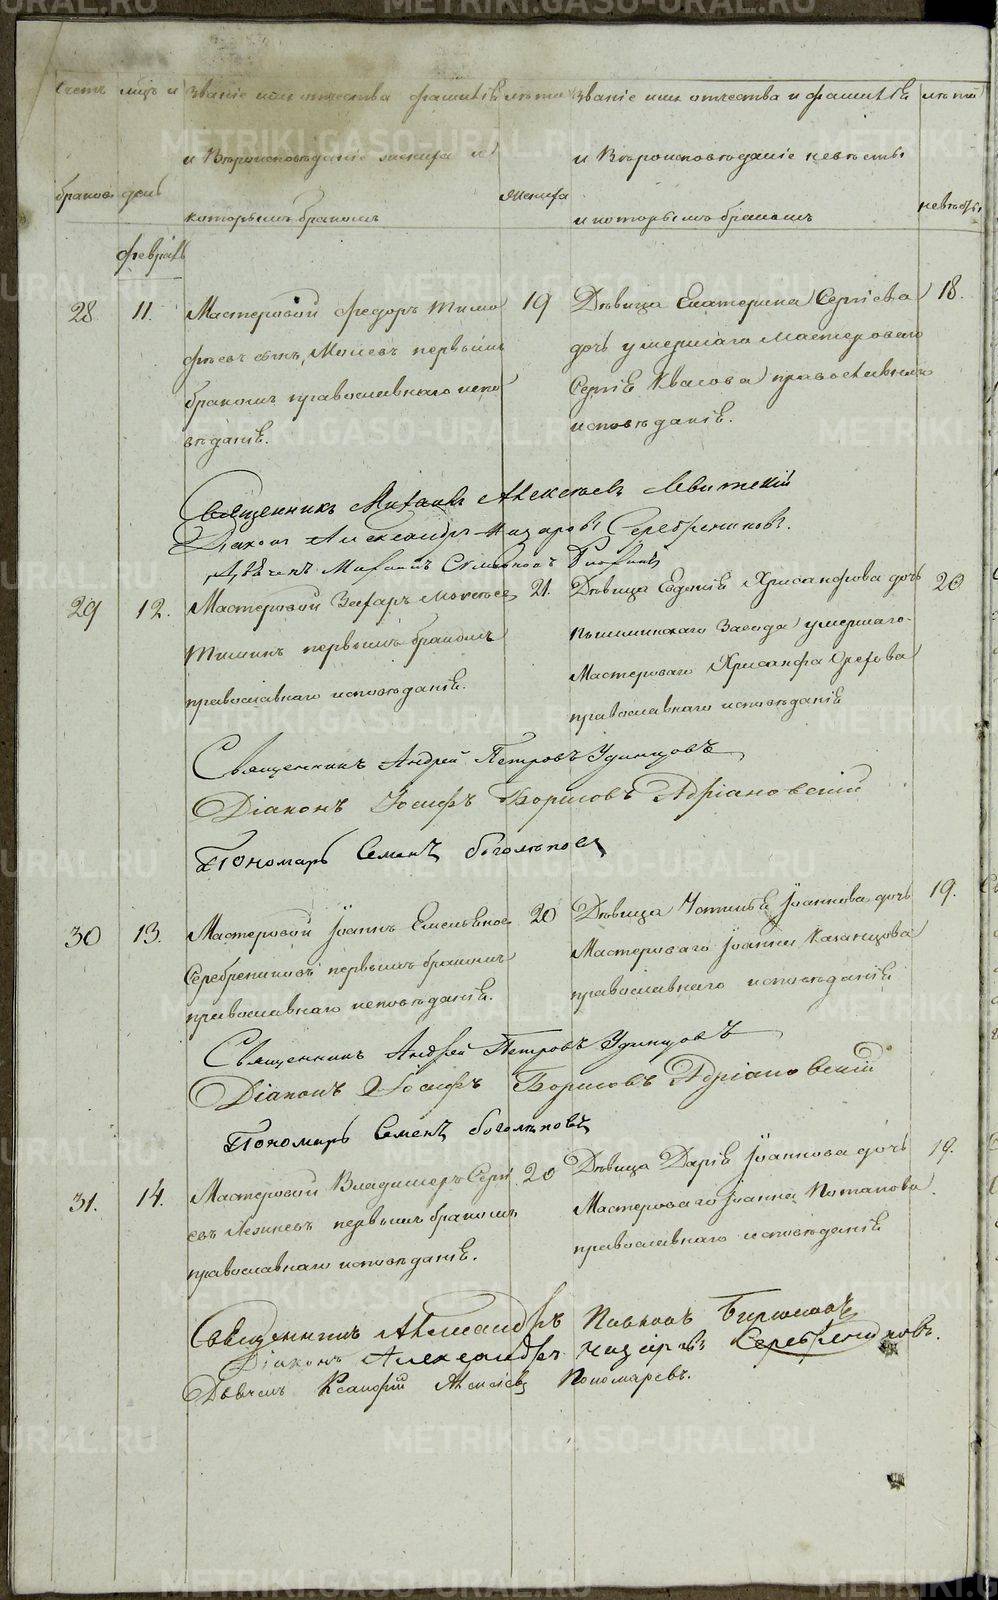 Счетъ лицъ и Званіе имя отчества фамилія лѣта Званіе имя отчества и фамилія лѣта
и Вѣроисповѣданіе жениха и и Вѣроисповѣданіе невѣсты
браковъ дни которымъ бракомъ жениха и которымъ бракомъ невѣсты
февраль
28 11. Мастеровой Федоръ Тимо 19 Дѣвица Екатерина Сергіева 18.
фѣевъ сынъ первымъ дочь умершаго мастероваго
бракомъ православнаго испо Сергія Квасова православнаго
вѣданія. исповѣданія.
Священникъ Михаилъ Алексѣевъ Левитскій
Діаконъ Александръ Назаровъ Серебрениковъ.
Михаилъ
29 12. Мастеровой Захаръ 21. Дѣвица Евдокія Хрисанфова дочь 20
первымъ бракомъ Пышминскаго Завода умершаго
православнаго исповѣданія. Мастероваго Хрисанфа Орехова
православнаго исповѣданія
Священникъ Андрей Петровъ Удинцовъ
Діаконъ Іосифъ Борисовъ Адріановскій
Пономарь Семенъ Боголѣповъ
30 13. Мастеровой Іоаннъ Емельяновъ 20 Дѣвица Устинья Іоаннова дочь 19.
Серебрениковъ первымъ бракомъ Мастероваго Іоанна Казанцова
православнаго исповѣданія. православнаго исповѣданія
Священникъ Андрей Петровъ Удинцовъ
Діаконъ Іосифъ Борисовъ Адріановскій
Пономарь Семенъ Боголѣповъ
31. 14. Мастеровой Владимеръ Сергі 20 Дѣвица Дарія Іоаннова дочь 19.
евъ первымъ бракомъ Мастероваго Іоанна Потапова
православнаго исповѣданія. православнаго исповѣданія
Священникъ Александръ Павловъ Бирюковъ
Діаконъ Александръ Назаровъ Серебрениковъ.
Дьячекъ Ксенофонтъ Алексѣевъ Пономаревъ.
METRIKI.GASO-URAL.RU